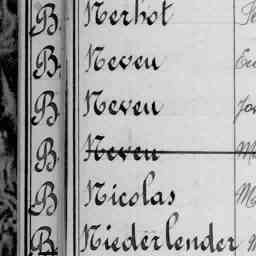 B. Nerhot
B. Neveu
B Neveu
B Neveu
B Nicolas
B Niederlender